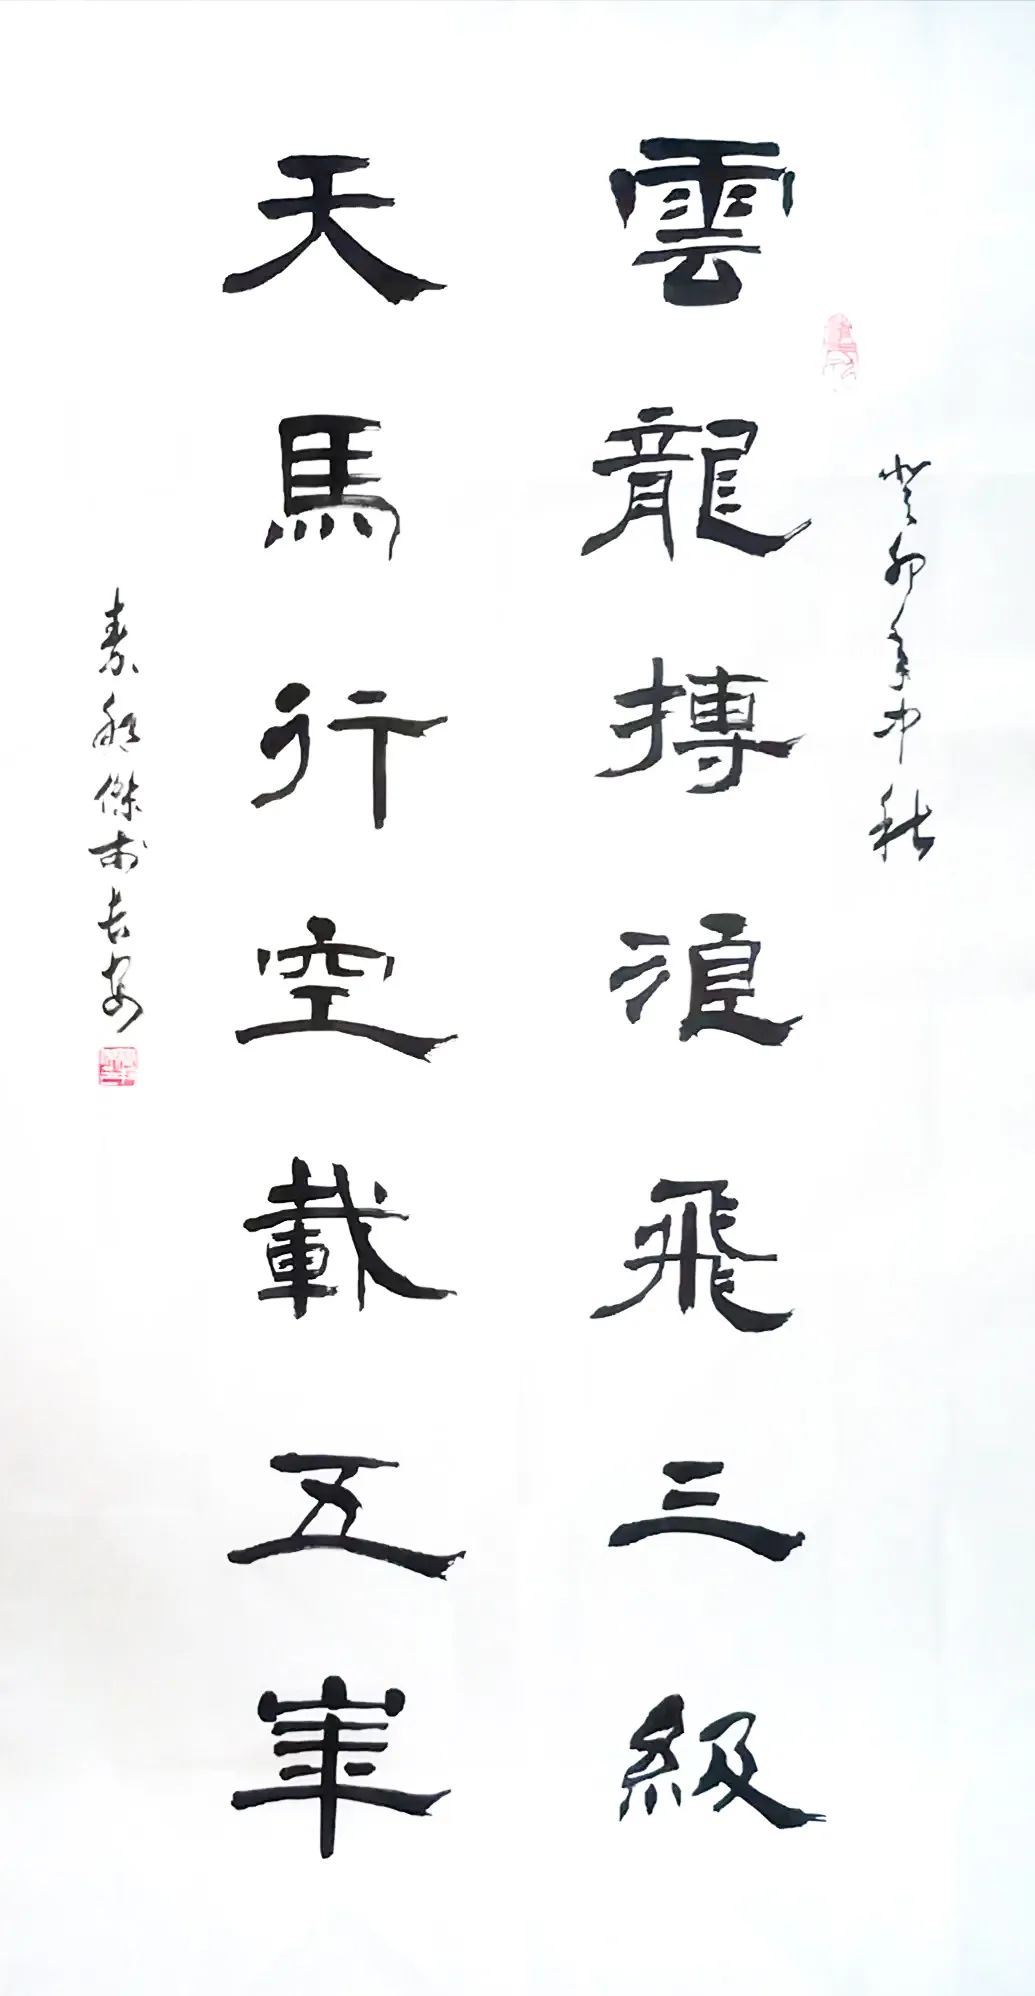 癸卯年中秋
雲龍搏浪飛三級
天馬行空載五
傑書長安